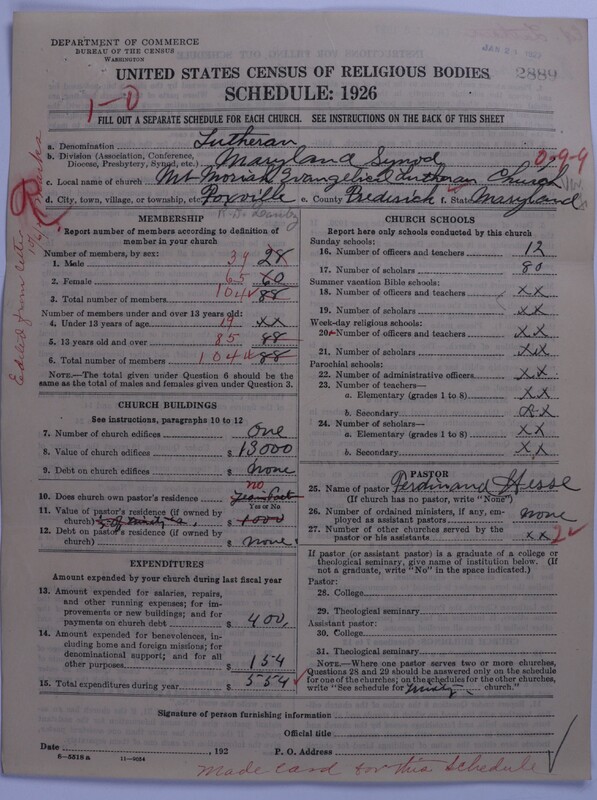 DEPARTMENT OF COMMERCE
BUREAU OF THE CENSUS
WASHINGTON
UNITED STATES CENSUS OF RELIGIOUS BODIES
2889
SCHEDULE: 1926
1-0
FILL OUT A SEPARATE SCHEDULE FOR EACH CHURCH. SEE INSTRUCTIONS ON THE BACK OF THIS SHEET
a. Denomination Lutheran
b. Division (Association, Conference, Diocese, Presbytery, Synod, etc.) Maryland Synod
0-9-9
c. Local name of church Mt Moriah Evangelical Lutheran Church
d. City, town, village, or township, etc. Foxville e. County Frederick f. State Maryland
Edited from letter
MEMBERSHIP
Report number of members according to definition of
member in your church
Number of members, by sex:
1. Male 39 28
2. Female 65 60
3. Total number of members 104 88
Number of members under and over 13 years old:
4. Under 13 years of age 19 xx
5. 13 years old and over 85 88
6. Total number of members 104 88
NOTE.—The total given under Question 6 should be
the same as the total of males and females given under Question 3.
CHURCH BUILDINGS
See instructions, paragraphs 10 to 12
7. Number of church edifices One
8. Value of church edifices $ 13000
9. Debt on church edifices $ none
no
10. Does church own pastor's residence
Yes or No
11. Value of pastor's residence (if owned by
church) $ 1000
12. Debt on pastor's residence (if owned by
church) $ none
EXPENDITURES
Amount expended by your church during last fiscal year
13. Amount expended for salaries, repairs,
and other running expenses; for im-
provements or new buildings; and for
payments on church debt $ 400,
14. Amount expended for benevolences, in-
cluding home and foreign missions; for
denominational support; and for all
other purposes $ 154
15. Total expenditures during year $ 554
CHURCH SCHOOLS
Report here only schools conducted by this church
Sunday schools:
16. Number of officers and teachers 12
17. Number of scholars 80
Summer vacation Bible schools:
18. Number of officers and teachers xx
19. Number of scholars xx
Week-day religious schools:
20. Number of officers and teachers xx
21. Number of scholars xx
Parochial schools:
22. Number of administrative officers xx
23. Number of teachers—
a. Elementary (grades 1 to 8) xx
b. Secondary xx
24. Number of scholars—
a. Elementary (grades 1 to 8) xx
b. Secondary xx
PASTOR
25. Name of pastor Ferdinand Hesse
(If church has no pastor, write "None")
26. Number of ordained ministers, if any, em-
ployed as assistant pastors none
27. Number of other churches served by the
pastor or his assistants xx 2
If pastor (or assistant pastor) is a graduate of a college or
theological seminary, give name of institution below. (If
not a graduate, write "No" in the space indicated.)
Pastor:
28. College
29. Theological seminary
Assistant pastor:
30. College
31. Theological seminary
NOTE.—Where one pastor serves two or more churches,
Questions 28 and 29 should be answered only on the schedule
for one of the churches; on the schedules for the other churches,
write "See schedule for church."
Signature of person furnishing information
Official title
Date , 192 P. O. Address
8—5518a 11—9054
Made card for this schedule